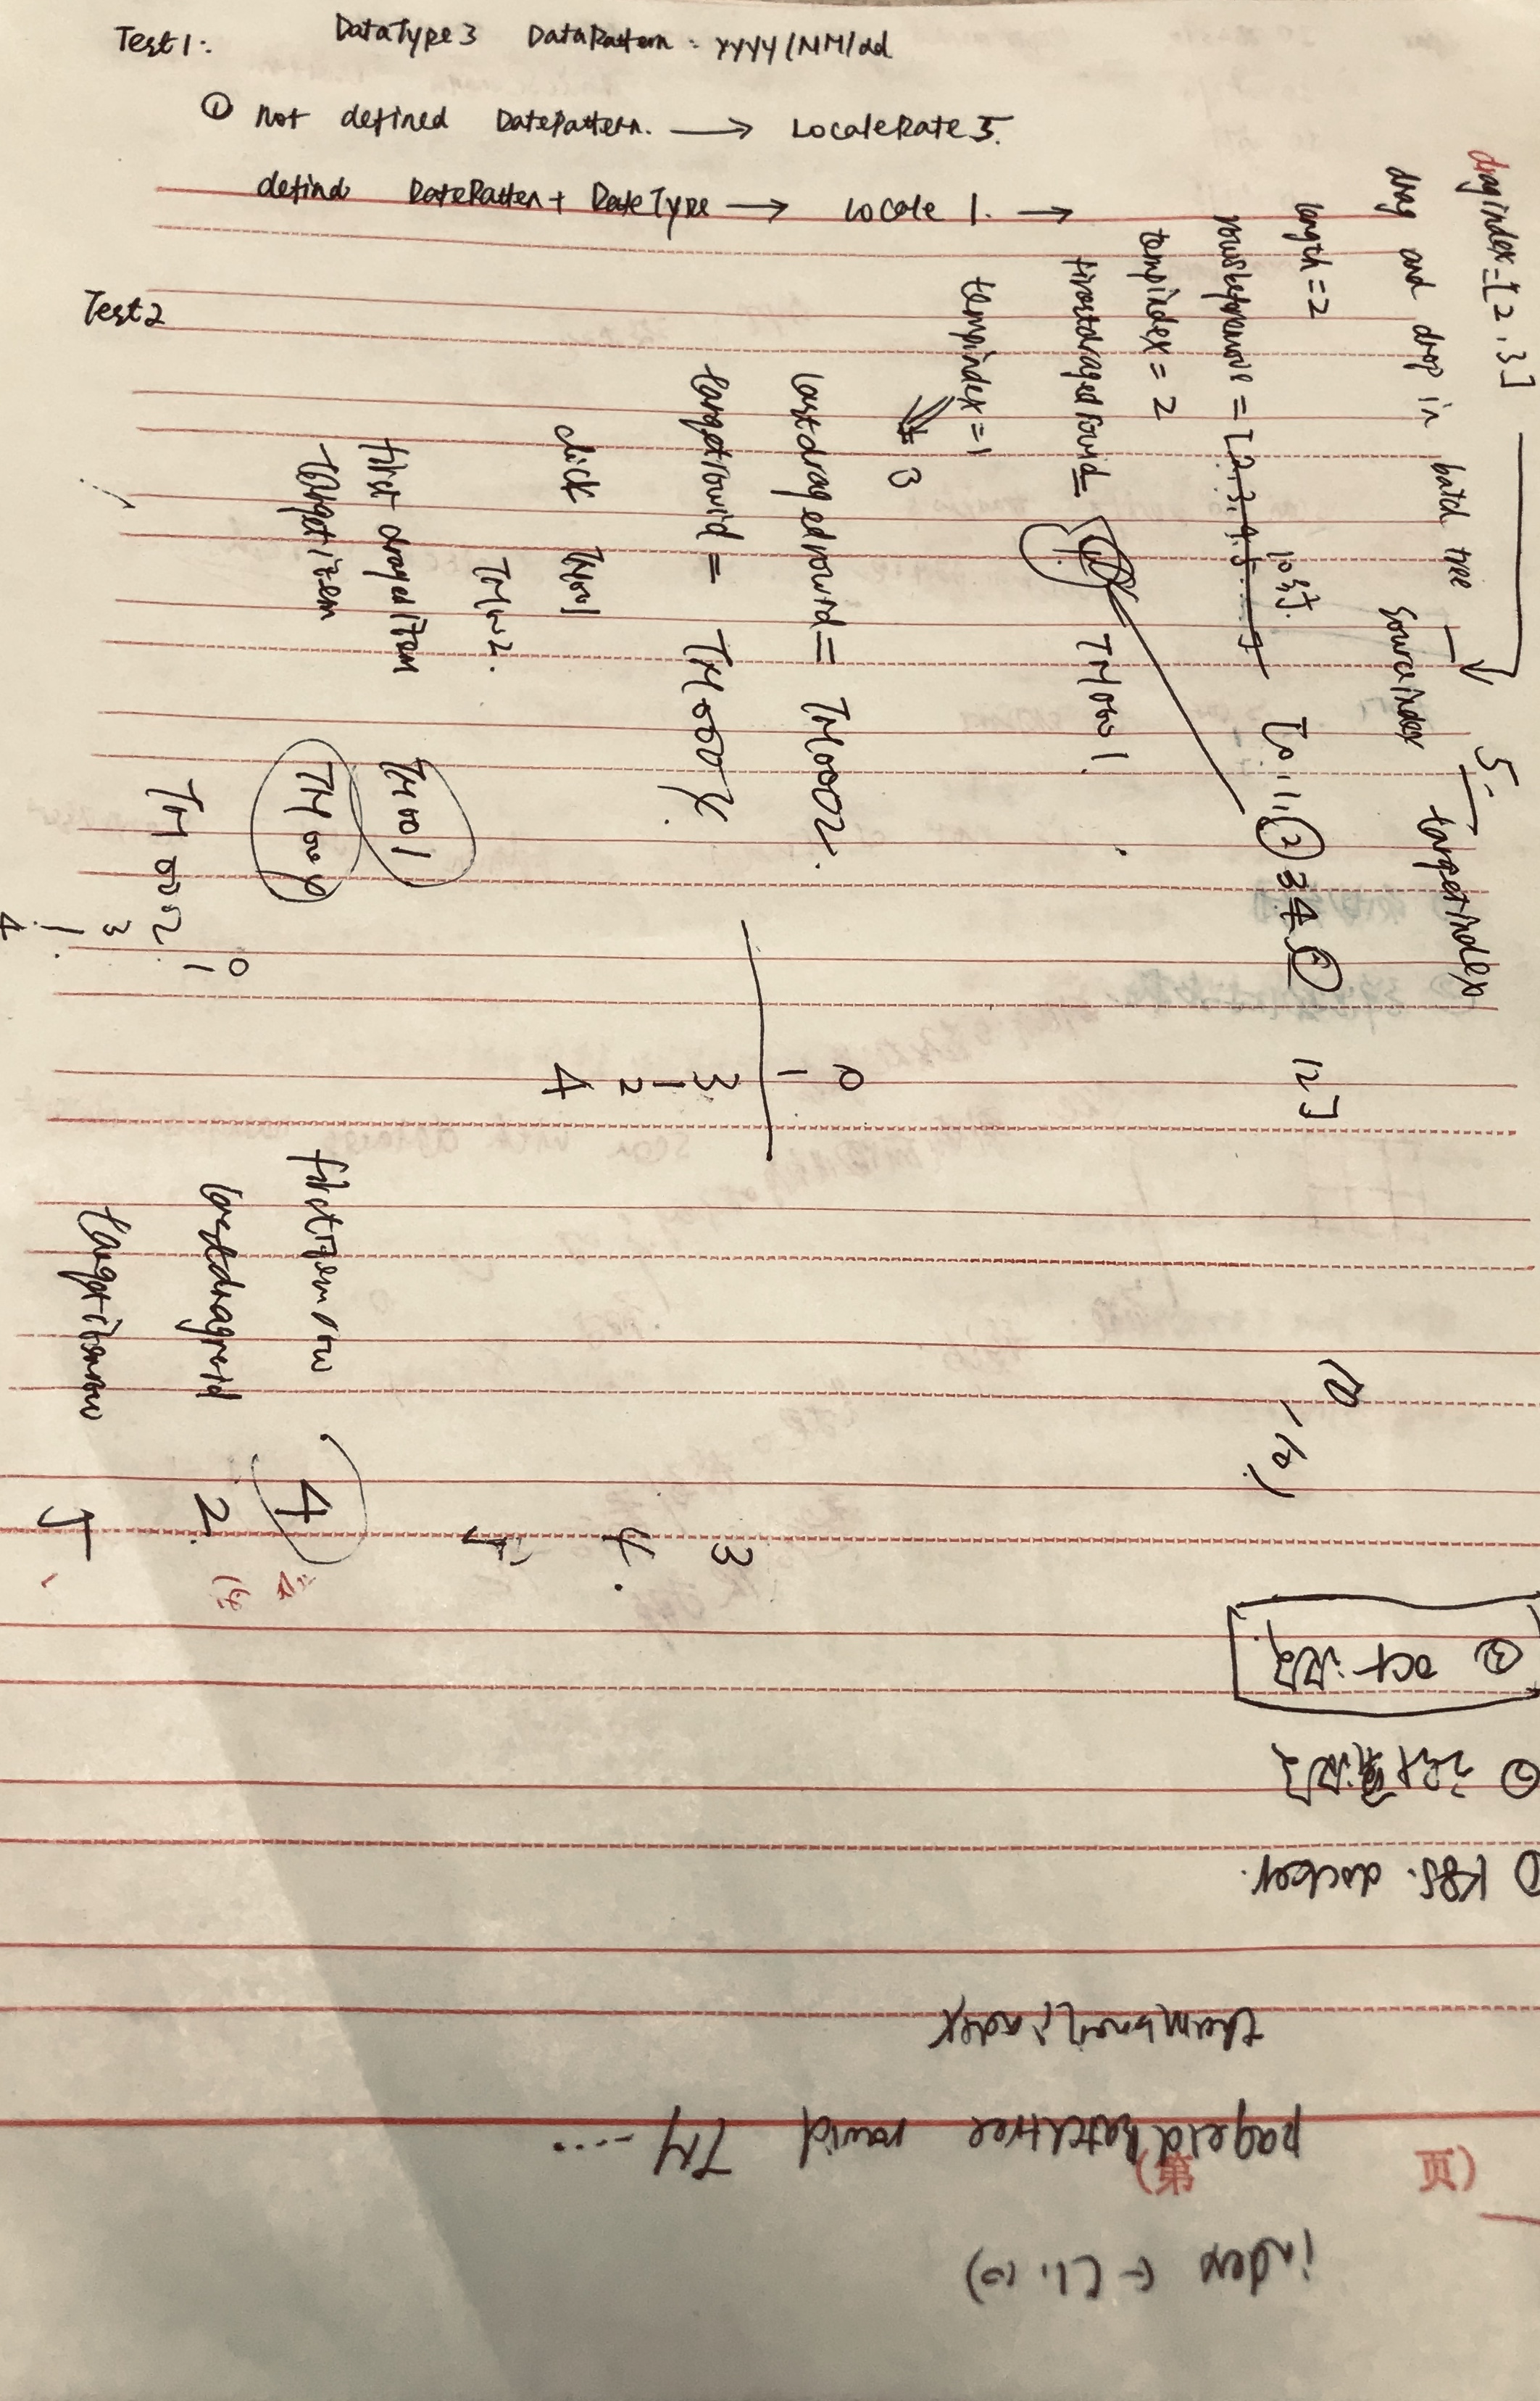 Test1: DataType3 DataPattern: yyyy/MM/dd
① not defined DatePattern. → LocaleRate 5.
defind DatePatten + DateType → Locale 1. →
Test2
dragindex=[2,3]
drag and drop in batch tree
sourceindex 5. targetindex
length=2
10行
=[2,3,4,5 ]
[0,1,② 3 4 12]
tempindex=2
firstdragedrowid= TM0001.
tempindex=1
3
lastdragedrowid= TM0002.
targetrowid = TM000
click TM001
TM002.
first draged item TM001
target item TM00
TM0002.
0
1
3
1
4
0
1
3
1
2
4
lastdragrowid 2.
targetitemrow 5
4
3
4.
5
10
② oct
① k8s. docker.
pageid batchtree rowid TM----...
index ∈ [1,10)
(第 页)